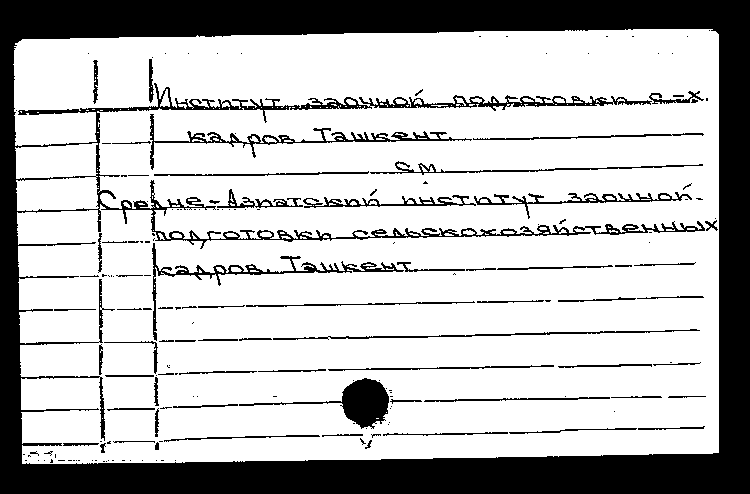 Институт заочной подготовки с-х.
кадров. Ташкент.
см.
Средне-Азиатский институт заочной
подготовки сельскохозяйственных
кадров. Ташкент.